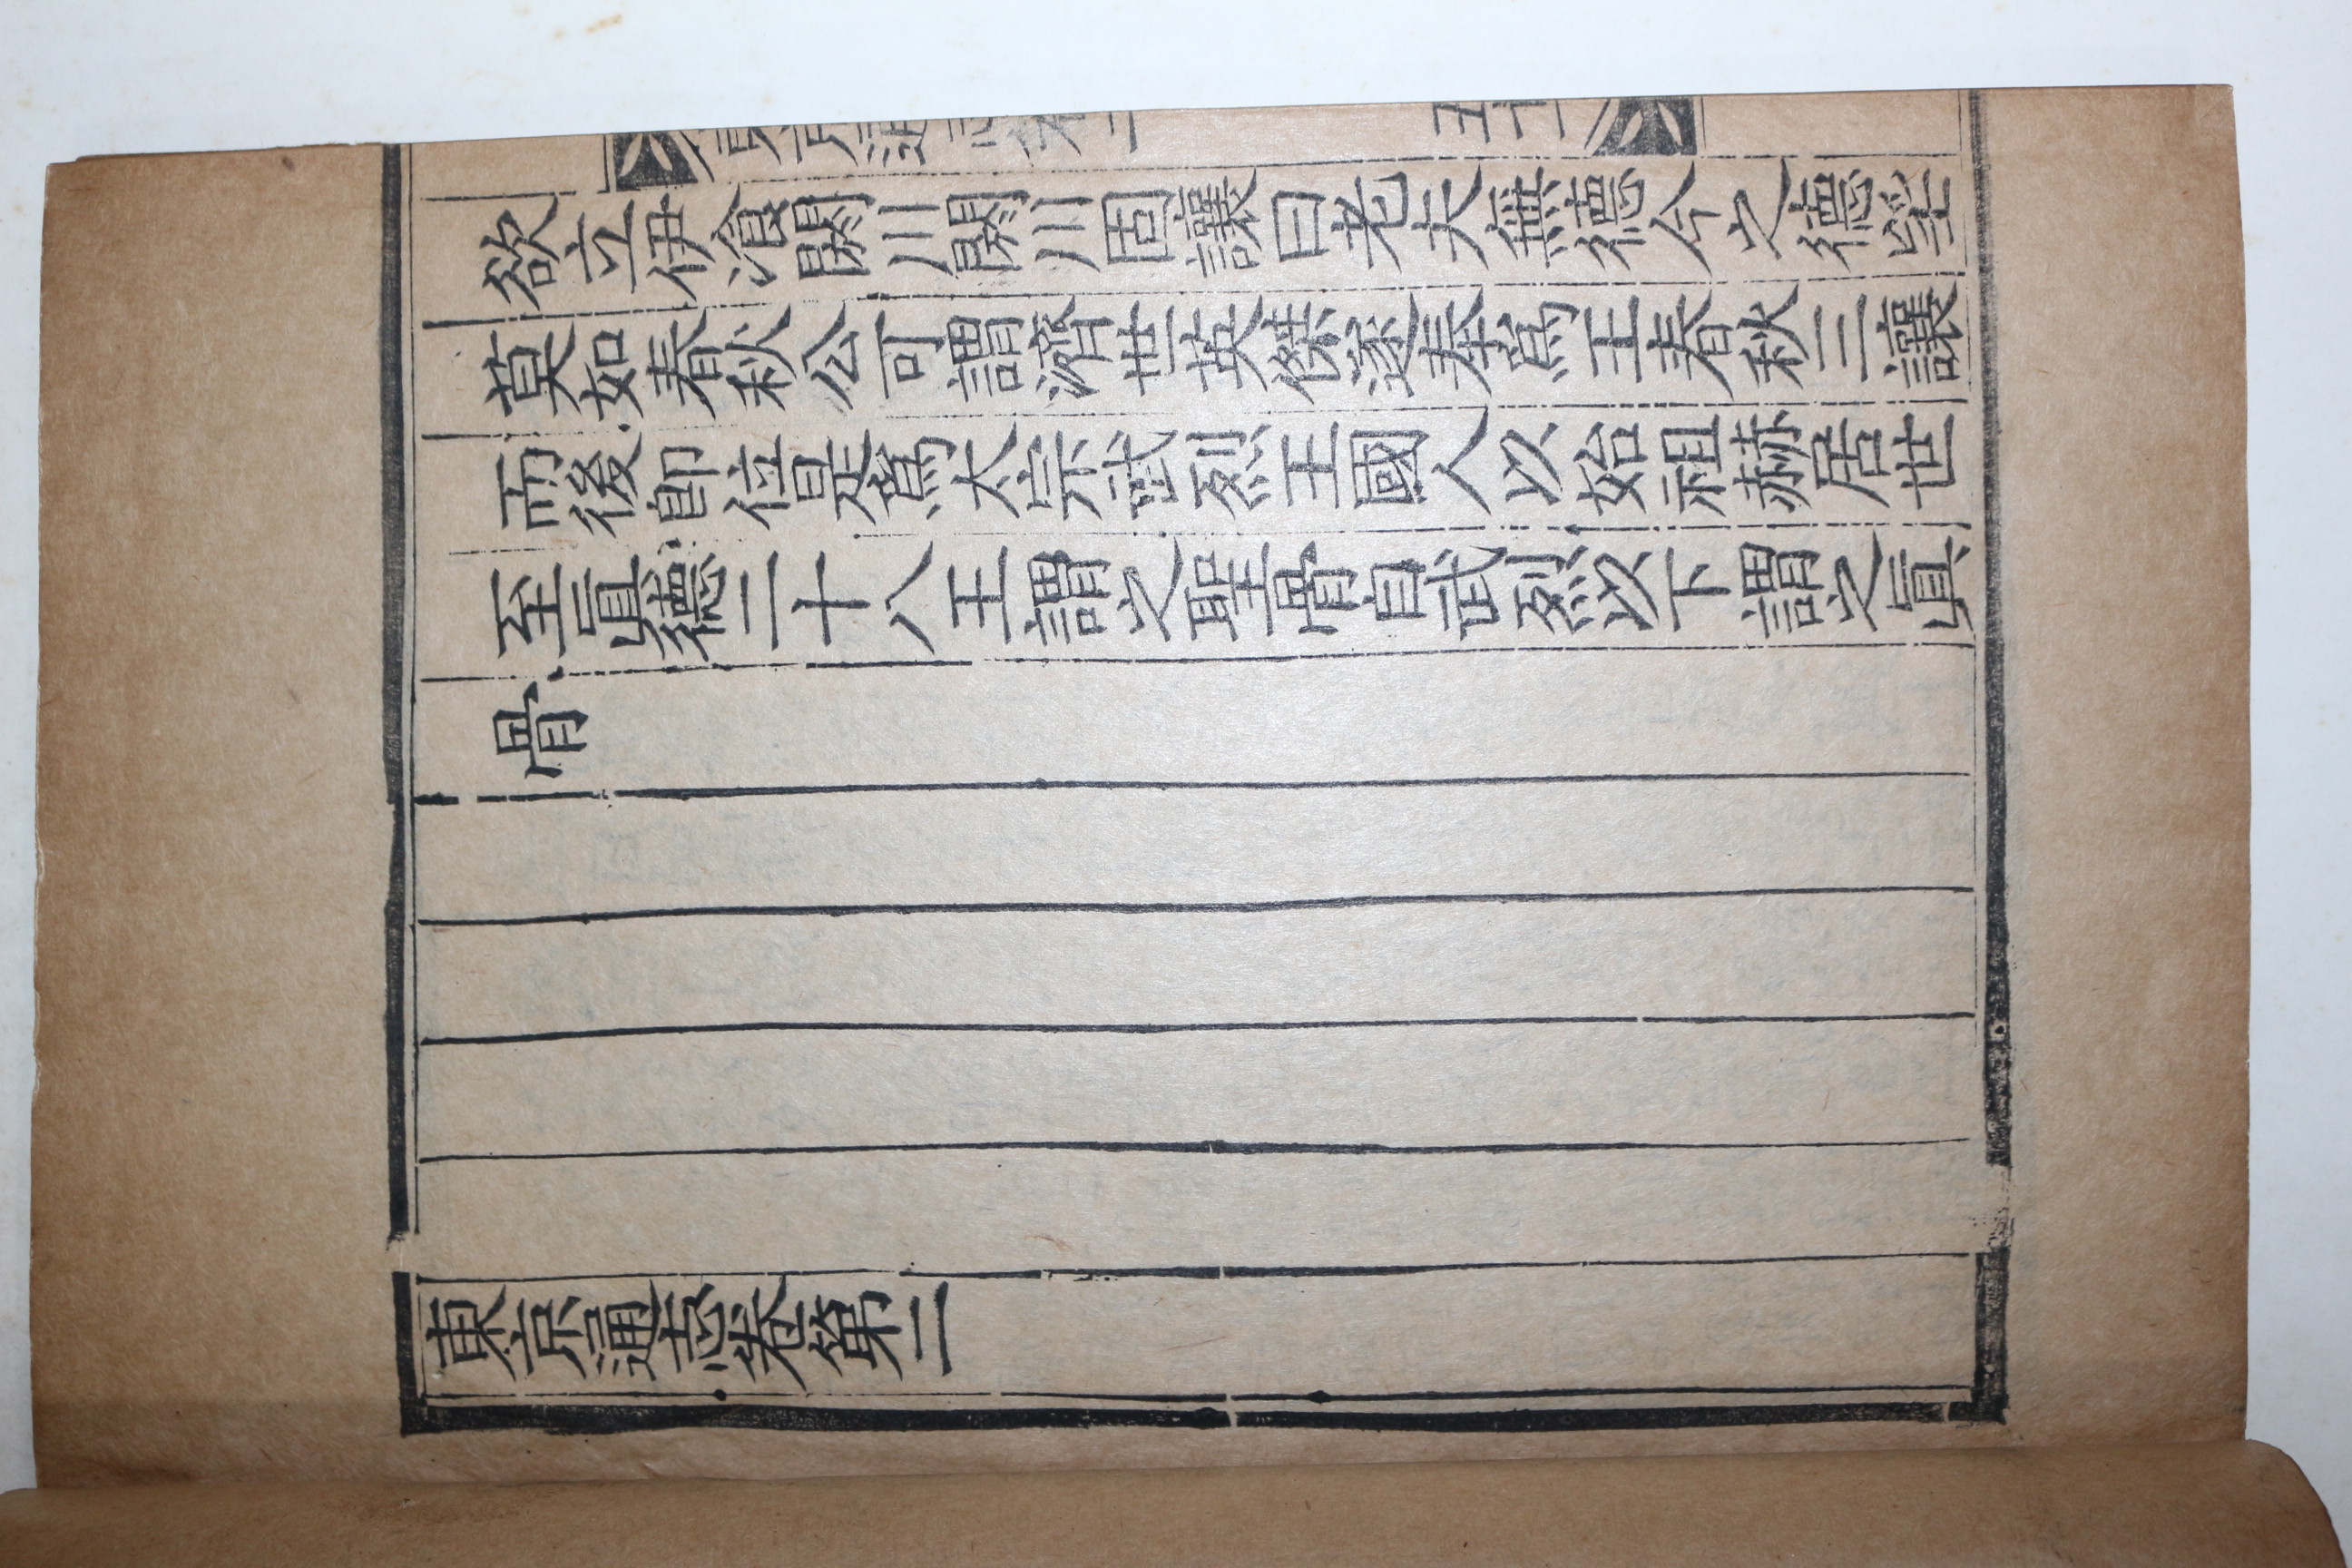 東京通志卷二 五十一
欲立伊飡閼川閼川固讓曰老夫無德今之德望
莫如春秋公可謂濟世英傑遂奉爲王春秋三讓
而後卽位是爲太宗武烈王國人以始祖赫居世
至眞德二十八王謂之聖骨自武烈以下謂之眞
骨
東京通志卷第二